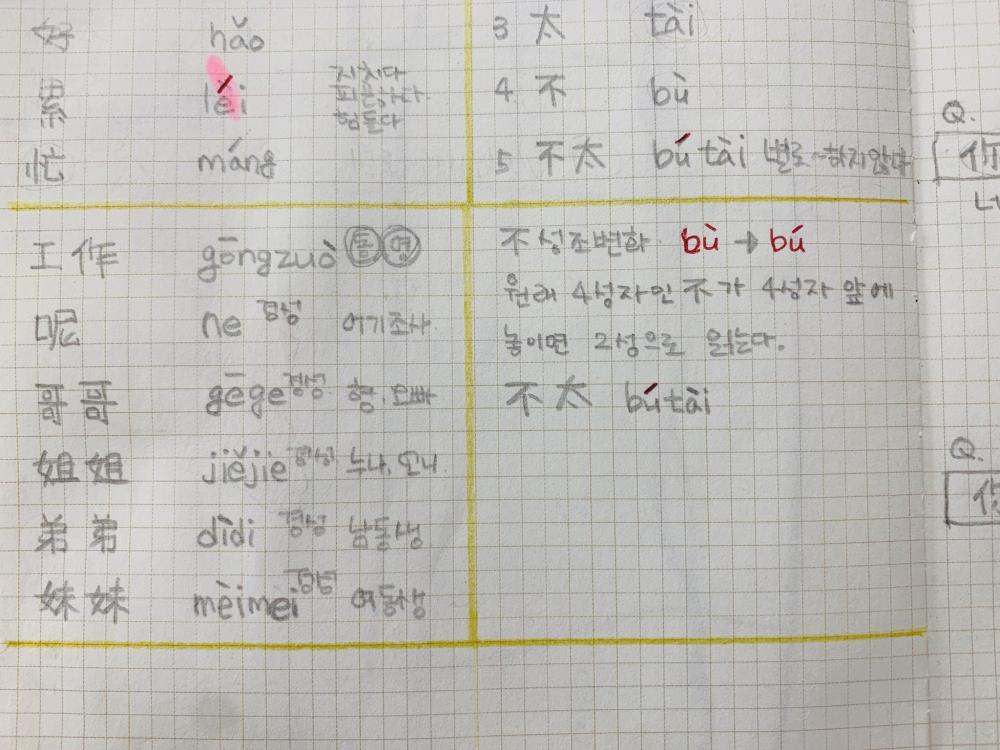 好 hǎo
累 lèi 지치다
피곤하다
힘들다
忙 máng
工作 gōngzuò 동 명
呢 ne 경성 어기조사
哥哥 gēge 경성 형 오빠
姐姐 jiějie 경성 누나, 언니
弟弟 dìdi 경성 남동생
妹妹 mèimei 경성 여동생
3 太 tài
4 不 bù
5 不太 bútài 별로~하지않다
不 성조변화 bù → bú
원래 4성자인 不가 4성자 앞에
놓이면 2성으로 읽는다.
不太 bútài
Q.
你
너
Q.